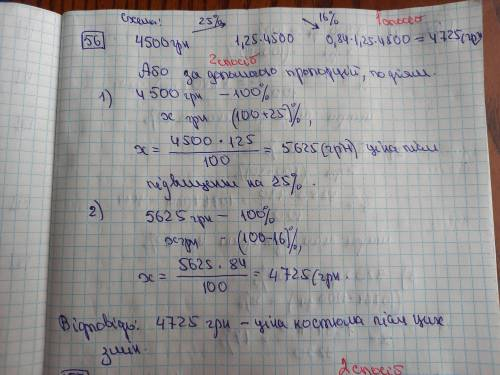 Схема: 25% 16% 1 спосіб
56 4500 грн 1,25·4500 0,84·1,25·4500 = 4725 (грн)
2 спосіб
Або за допомогою пропорцій, по діям.
1) 4500 грн – 100%
x грн (100+25)%,
x = 4500·125 / 100 = 5625 (грн) ціна після
підвищення на 25%.
2) 5625 грн – 100%
x грн – (100-16)%,
x = 5625·84 / 100 = 4725 (грн.
Відповідь: 4725 грн – ціна костюма після цих
змін.
2 спосіб